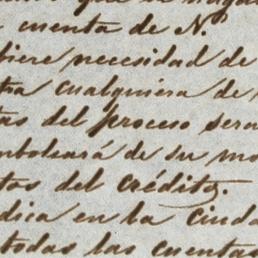 cuenta de N.
fiere necesidad de
tra cualquiera de
tas del proceso sera
mbolsará de su mo
tos del crédito.
dica en la ciuda
todas las cuentas